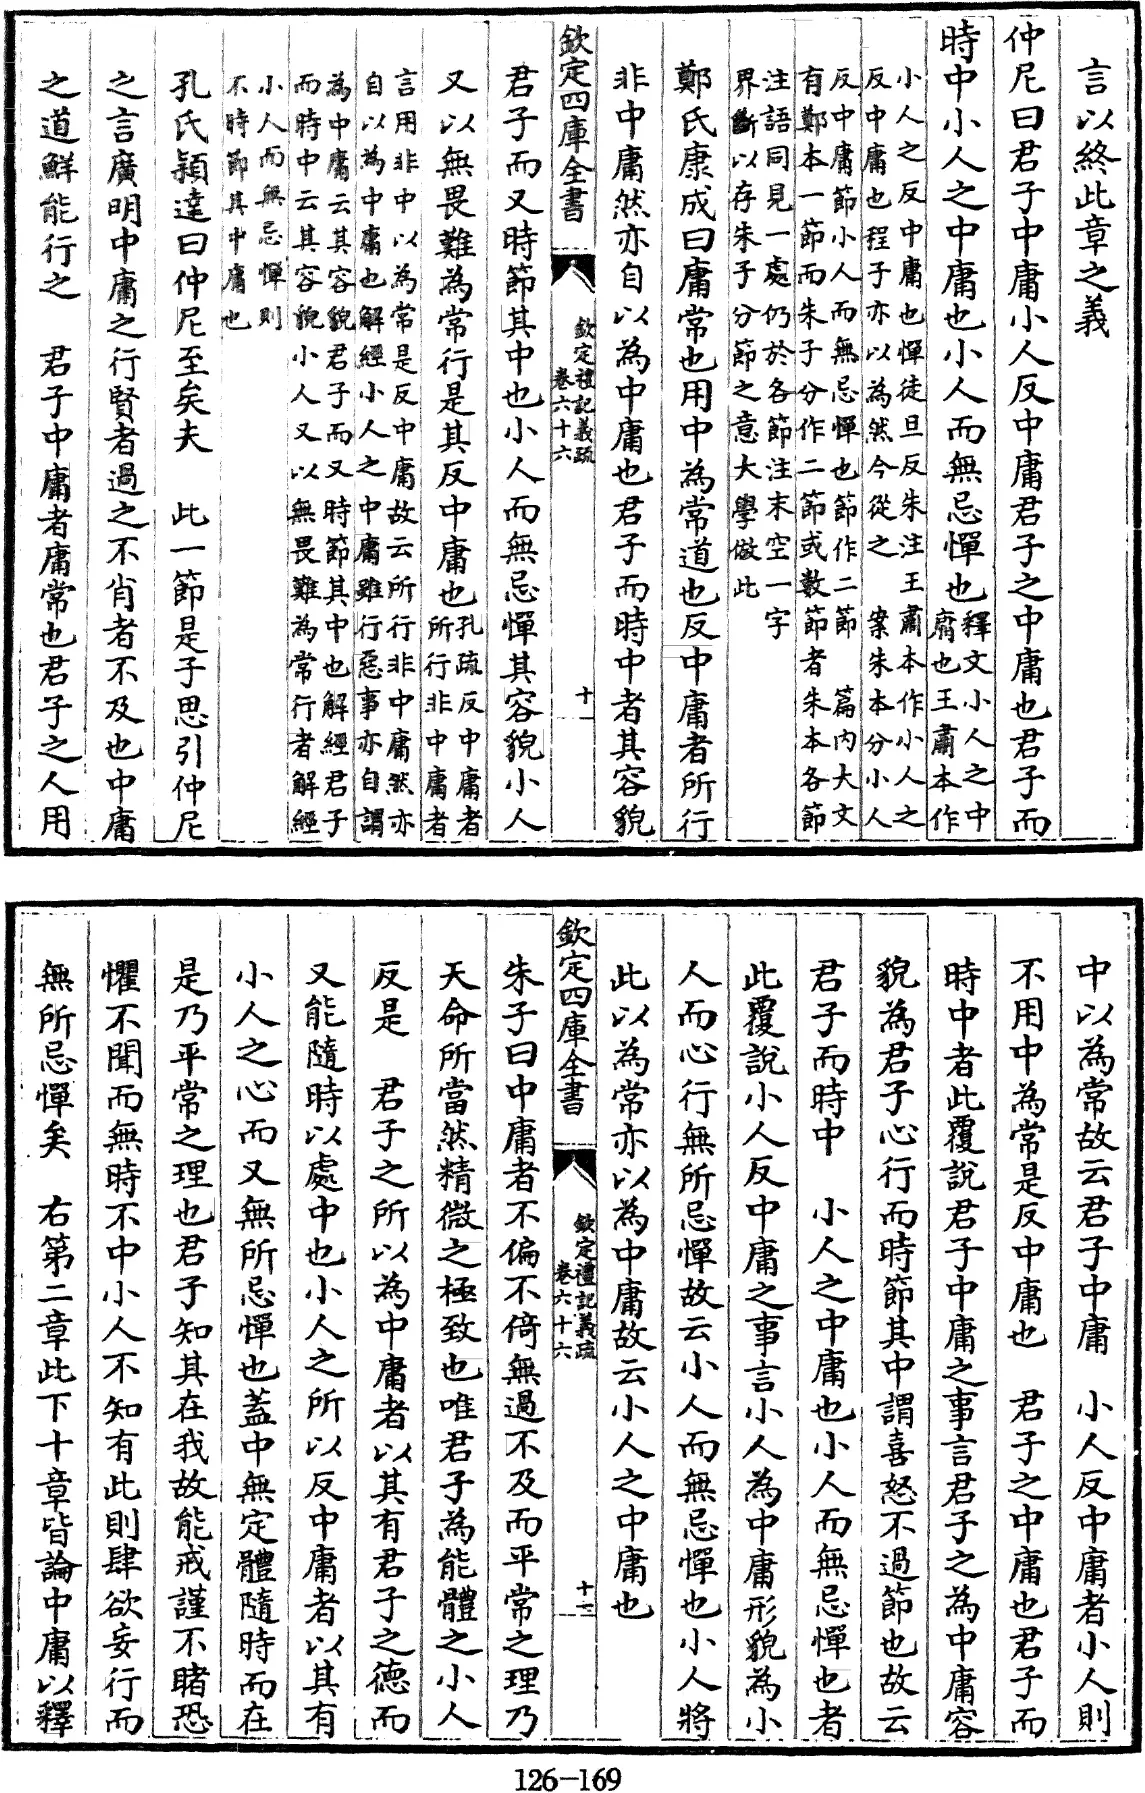 言以終此章之義
仲尼曰君子中庸小人反中庸君子之中庸也君子而
時中小人之中庸也小人而無忌憚也
釋文小人之中
庸也王肅本作
小人之反中庸也憚徒旦反朱注王肅本作小人之
反中庸也程子亦以為然今從之　案朱本分小人
反中庸節小人而無忌憚也節作二節　篇内大文
有鄭本一節而朱子分作二節或數節者朱本各節
注語同見一處仍於各節注末空一字
界斷以存朱子分節之意大學倣此
鄭氏康成曰庸常也用中為常道也反中庸者所行
非中庸然亦自以為中庸也君子而時中者其容貌
欽定四庫全書
欽定禮記義疏
卷六十六
十一
君子而又時節其中也小人而無忌憚其容貌小人
又以無畏難為常行是其反中庸也
孔疏反中庸者
所行非中庸者
言用非中以為常是反中庸故云所行非中庸然亦
自以為中庸也解經小人之中庸雖行惡事亦自謂
為中庸云其容貌君子而又時節其中也解經君子
而時中云其容貌小人又以無畏難為常行者解經
小人而無忌憚則
不時節其中庸也
孔氏穎達曰仲尼至矣夫　此一節是子思引仲尼
之言廣明中庸之行賢者過之不肖者不及也中庸
之道鮮能行之　君子中庸者庸常也君子之人用
中以為常故云君子中庸　小人反中庸者小人則
不用中為常是反中庸也　君子之中庸也君子而
時中者此覆說君子中庸之事言君子之為中庸容
貌為君子心行而時節其中謂喜怒不過節也故云
君子而時中　小人之中庸也小人而無忌憚也者
此覆說小人反中庸之事言小人為中庸形貌為小
人而心行無所忌憚故云小人而無忌憚也小人將
此以為常亦以為中庸故云小人之中庸也
欽定四庫全書
欽定禮記義疏
卷六十六
十二
朱子曰中庸者不偏不倚無過不及而平常之理乃
天命所當然精微之極致也唯君子為能體之小人
反是　君子之所以為中庸者以其有君子之德而
又能隨時以處中也小人之所以反中庸者以其有
小人之心而又無所忌憚也蓋中無定體隨時而在
是乃平常之理也君子知其在我故能戒謹不睹恐
懼不聞而無時不中小人不知有此則肆欲妄行而
無所忌憚矣　右第二章此下十章皆論中庸以釋
126-169